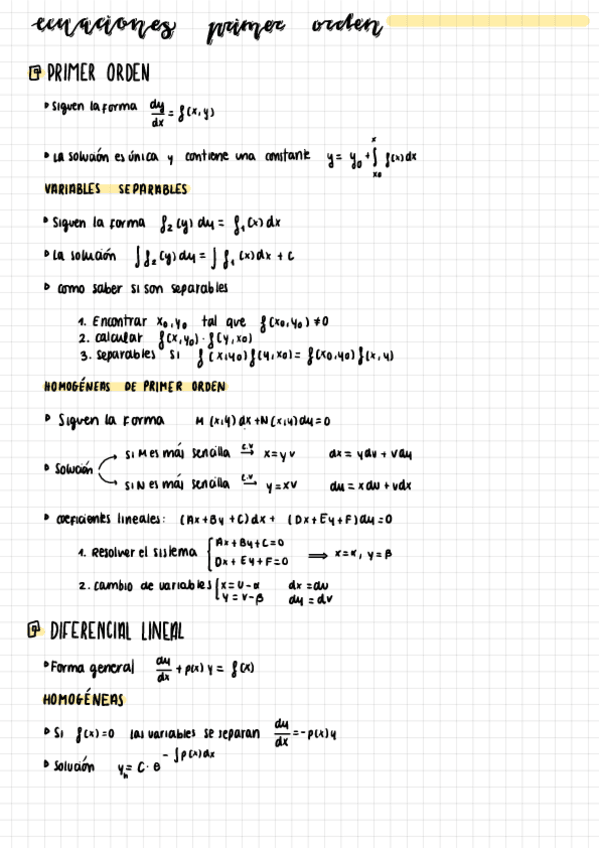 ecuaciones primer orden
PRIMER ORDEN
Siguen la forma dy/dx = f(x,y)
La solución es única y contiene una constante y = y₀ + ∫ₓ₀ˣ f(x)dx
VARIABLES SEPARABLES
Siguen la forma f₂(y) dy = f₁(x) dx
La solución ∫f₂(y)dy = ∫f₁(x)dx + C
como saber si son separables
1. Encontrar x₀,y₀ tal que f(x₀,y₀) ≠ 0
2. calcular f(x,y₀)·f(y,x₀)
3. separables si f(x,y₀)f(y,x₀) = f(x₀,y₀)f(x,y)
HOMOGÉNEAS DE PRIMER ORDEN
Siguen la forma M(x,y)dx + N(x,y)dy = 0
Solución
si M es más sencilla c.v→ x=yv dx = ydv + vdy
si N es más sencilla c.v→ y=xv dy = xdv + vdx
coeficientes lineales: (Ax+By+C)dx + (Dx+Ey+F)dy=0
1. Resolver el sistema { Ax+By+C=0
Dx+Ey+F=0 ⟹ x=α, y=β
2. cambio de variables { x=u-α dx=du
y=v-β dy=dv
DIFERENCIAL LINEAL
Forma general dy/dx + p(x)y = f(x)
HOMOGÉNEAS
Si f(x)=0 las variables se separan dy/dx = -p(x)y
Solución yₕ = C·e^(-∫p(x)dx)